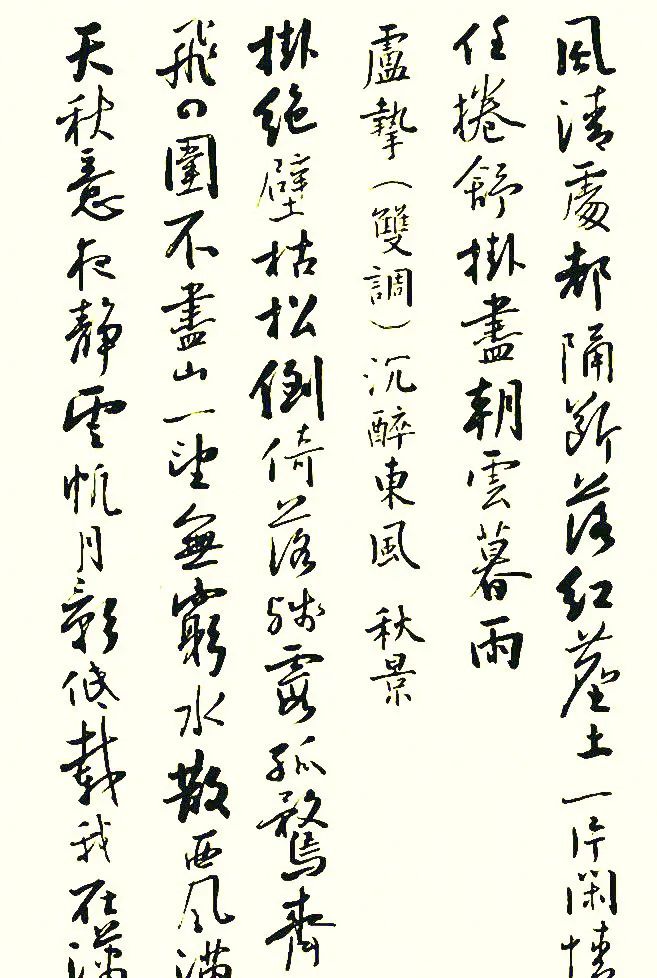 風清處都隔斷落紅塵土一片閑情
任捲舒掛盡朝雲暮雨
盧摯(雙調)沉醉東風 秋景
掛絕壁枯松倒倚落殘霞孤鶩齊
飛四圍不盡山一望無窮水散西風滿
天秋意夜靜雲帆月影低載我在瀟